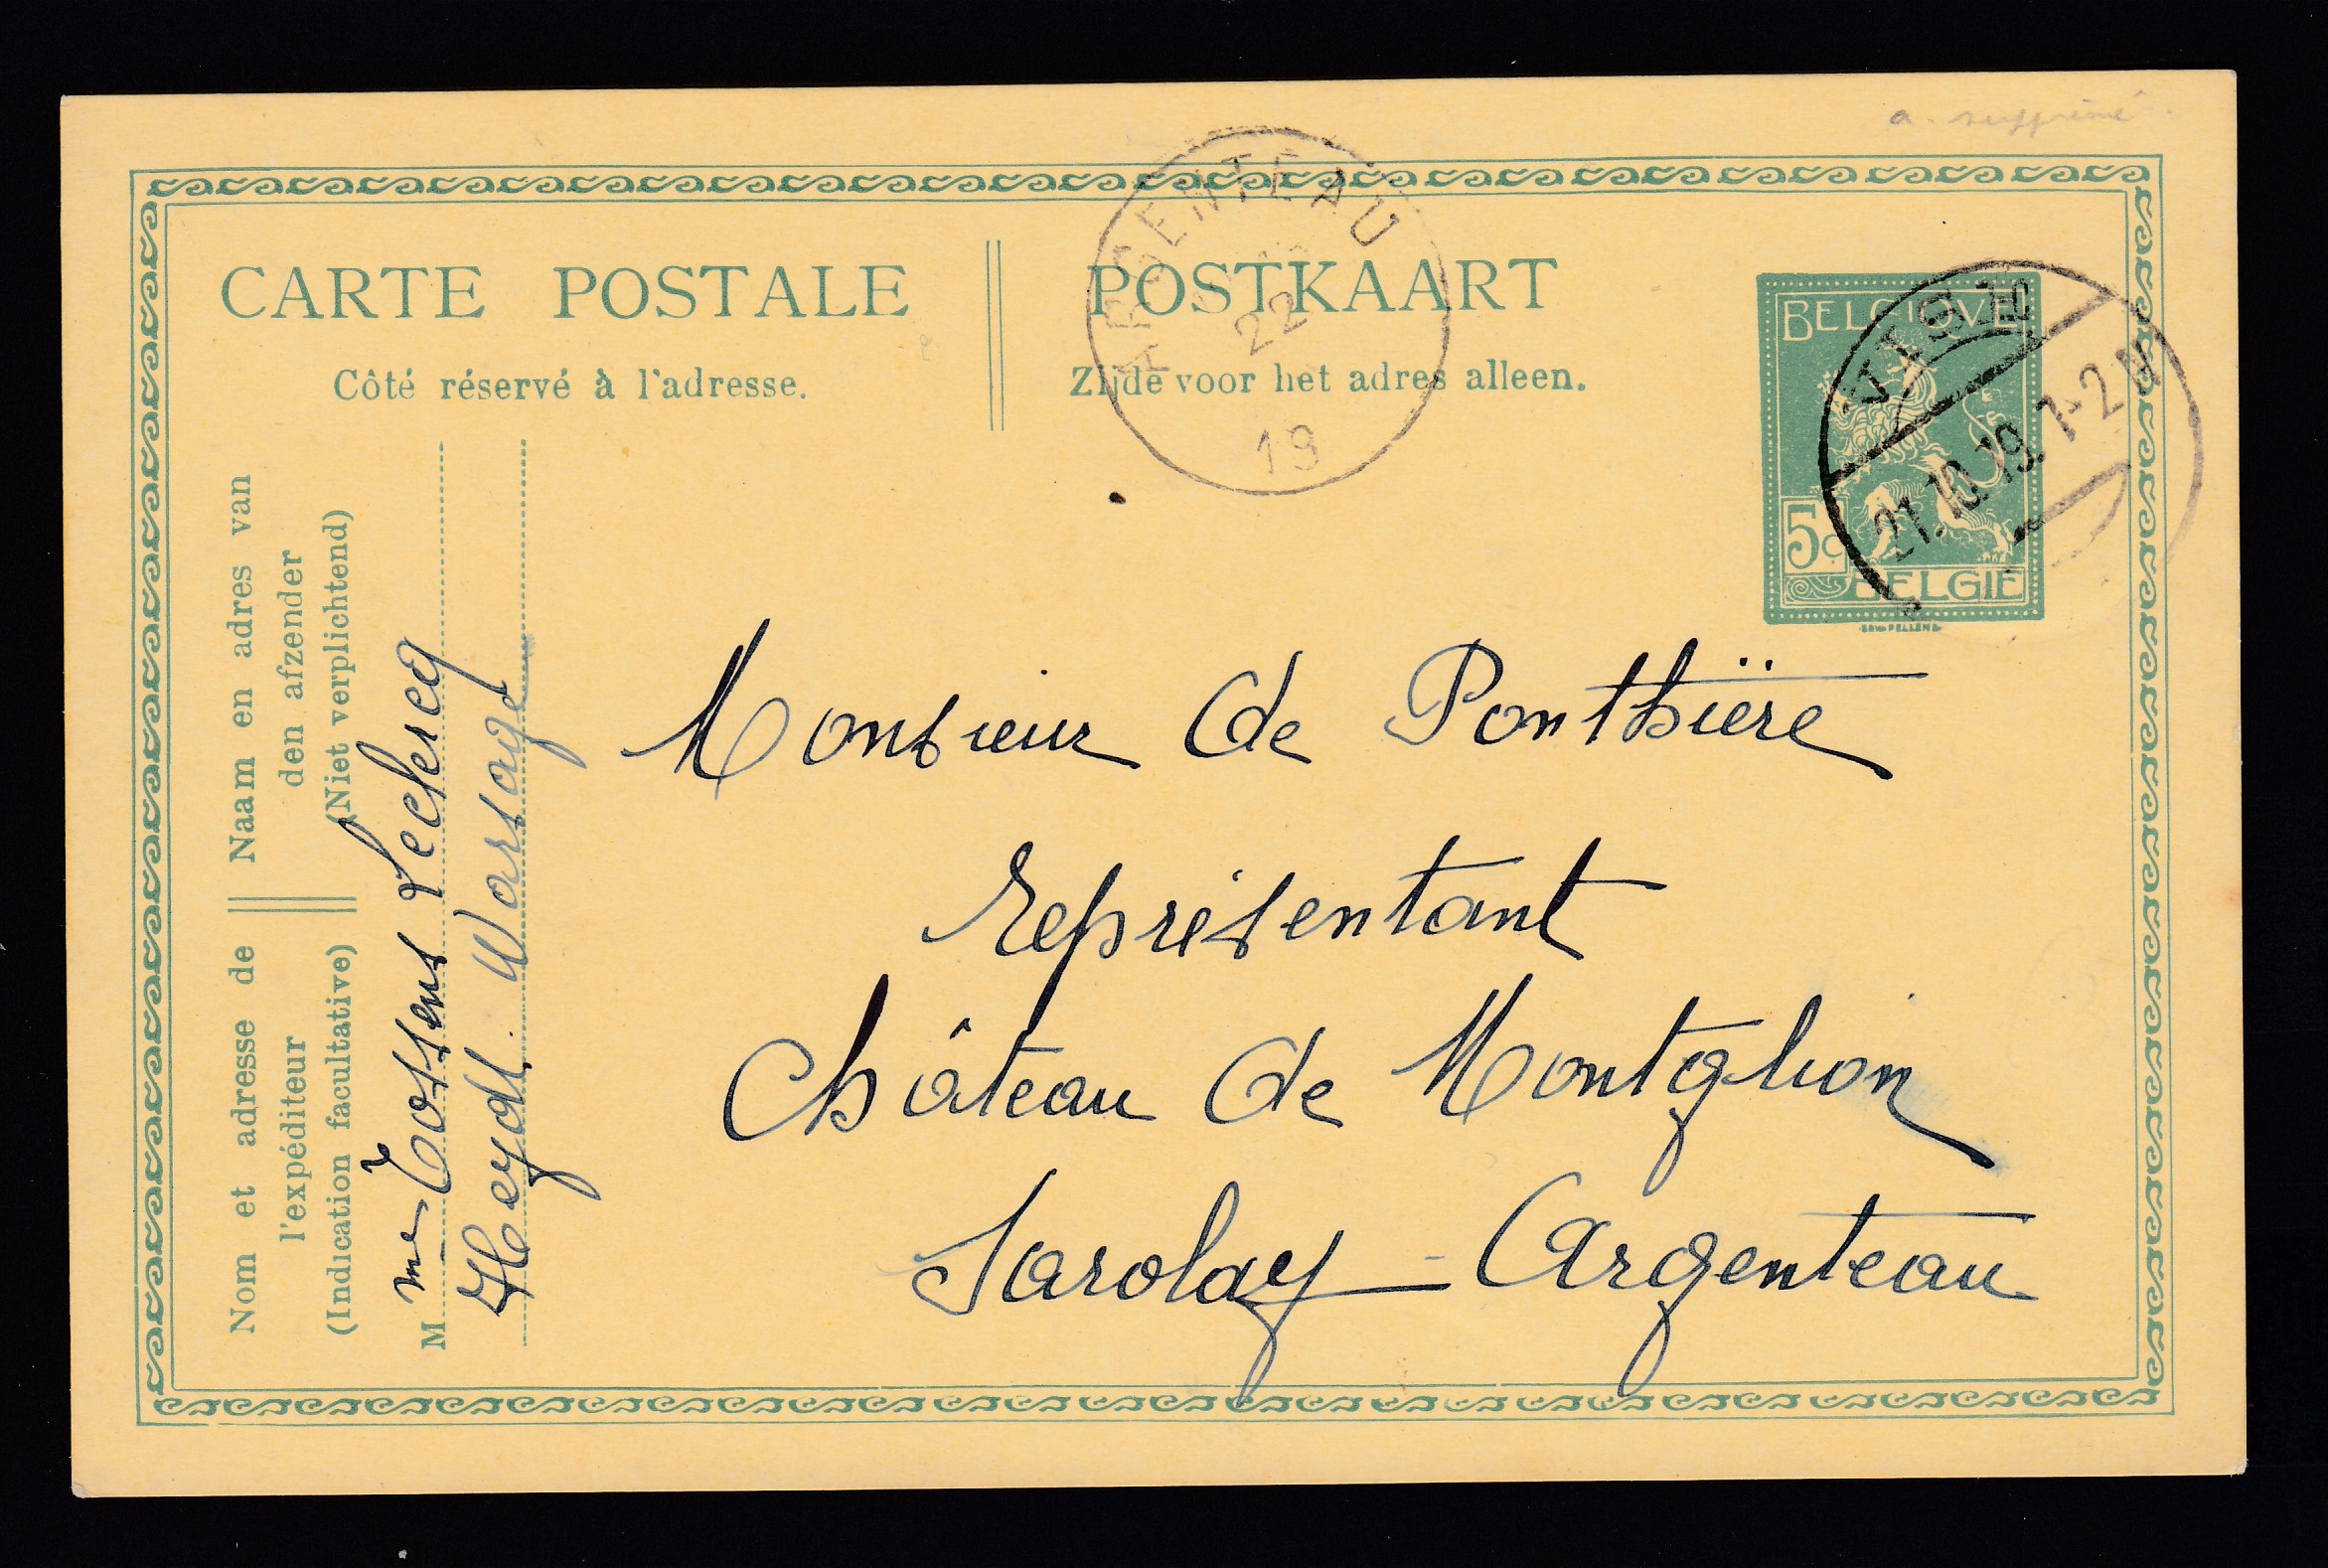 a. supprimé.
CARTE POSTALE
Côté réservé à l'adresse.
POSTKAART
Zijde voor het adres alleen.
ARGENTEAU
22
19
BELGIQUE
5c
BELGIE
VISÉ
21.10.19. 1-2
Naam en adres van
den afzender
(Niet verplichtend)
Nom et adresse de
l'expéditeur
(Indication facultative)
M me Tossens Leclercq
Heydt. Warsage
Monsieur de Ponthière
représentant
Château de Montglion
Sarolay - Argenteau